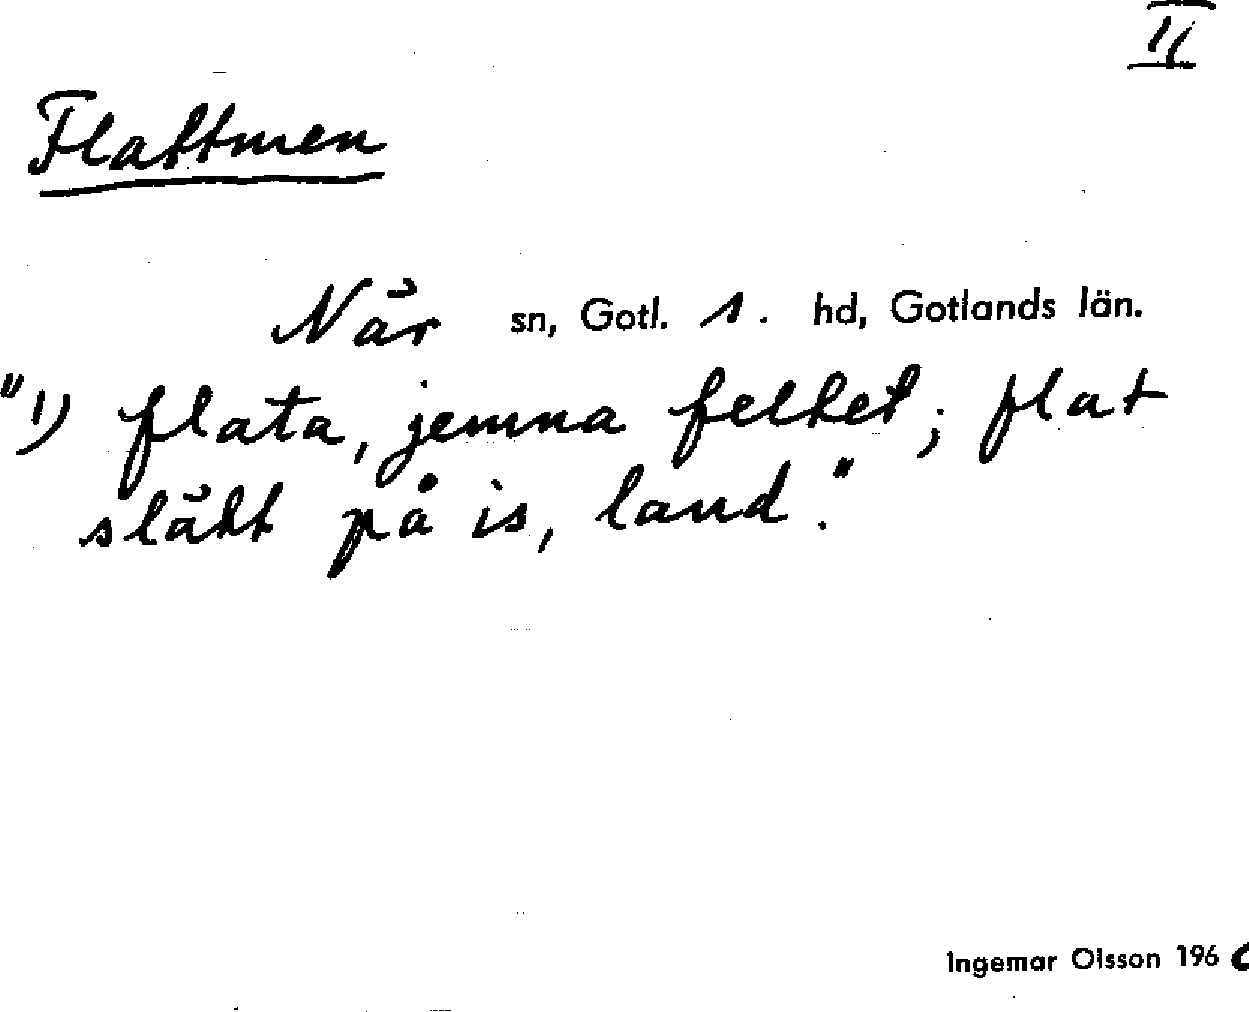 II
Flattmen
När sn, Gotl. s. hd, Gotlands län.
"1) flata, jemna feltet; flat
slätt på is, land."
Ingemar Olsson 196